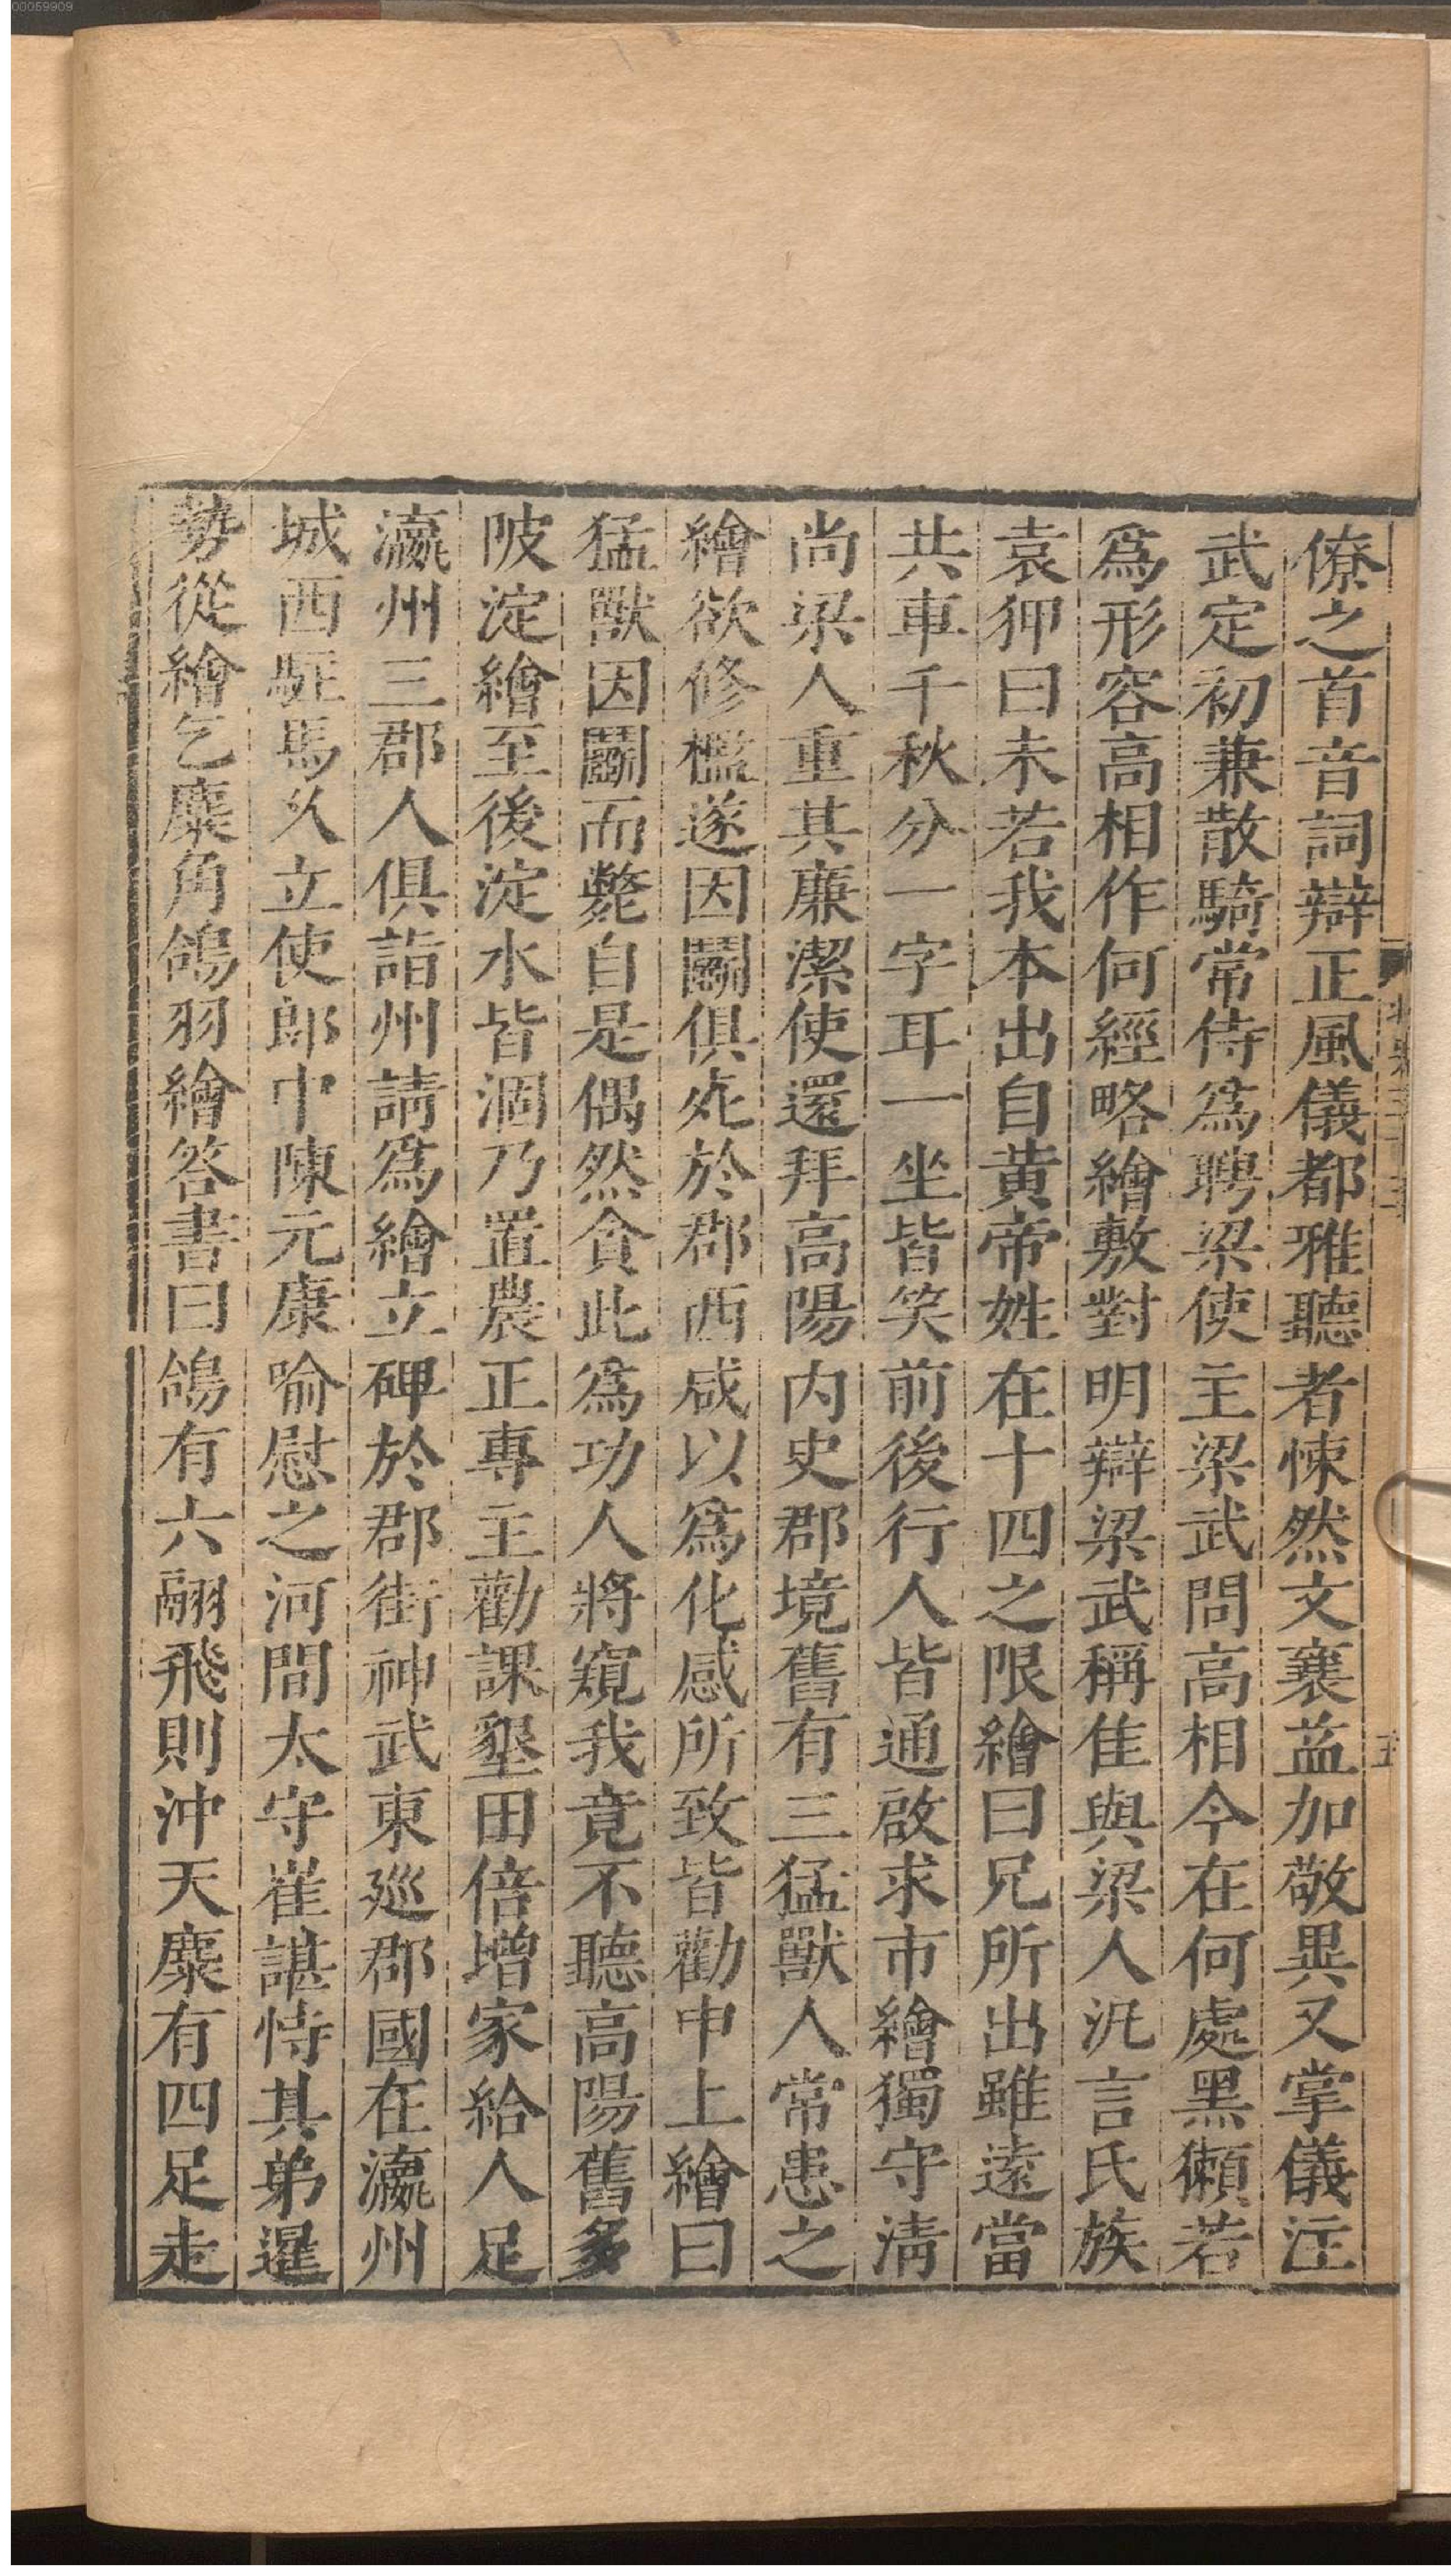 00059909
僚之首音詞辯正風儀都雅聽者悚然文襄益加敬異又掌儀注
武定初兼散騎常侍爲聘梁使主梁武問高相今在何處黑獺若
爲形容高相作何經略繪敷對明辯梁武稱佳與梁人汎言氏族
袁狎曰未若我本出自黃帝姓在十四之限繪曰兄所出雖遠當
共車千秋分一字耳一坐皆笑前後行人皆通啟求市繪獨守清
尚梁人重其廉潔使還拜高陽内史郡境舊有三猛獸人常患之
繪欲修檻遂因鬭俱死於郡西咸以爲化感所致皆勸申上繪曰
猛獸因鬭而斃自是偶然貪此爲功人將窺我竟不聽高陽舊多
陂淀繪至後淀水皆涸乃置農正專主勸課墾田倍增家給人足
瀛州三郡人俱詣州請爲繪立碑於郡街神武東廵郡國在瀛州
城西駐馬乆立使郎中陳元康喻慰之河間太守崔諶恃其弟暹
勢從繪乞麋角鴿羽繪答書曰鴿有六翮飛則沖天麋有四足走
五